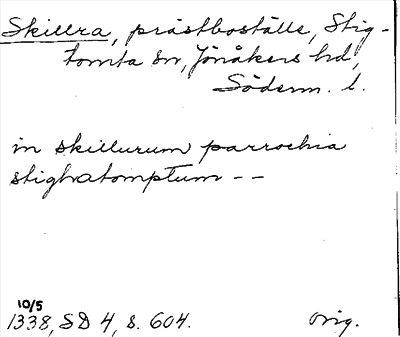 Skillra, prästboställe, Stig-
tomta sn, Jönåkers hd,
Söderm. l.
in skillurum parrochia
stighatomptum --
10/5
1338, SD 4, s. 604. Orig.